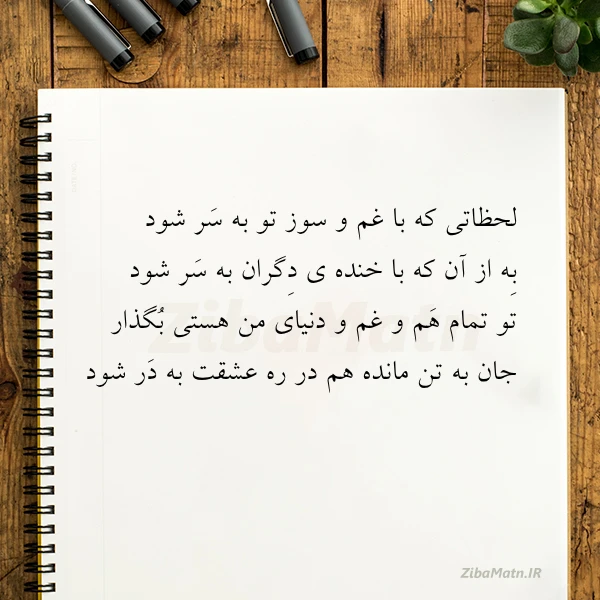 لحظاتی که با غم و سوز تو به سَر شود
بِه از آن که با خنده ی دِگران به سَر شود
تو تمام هَم و غم و دنیای من هستی بُگذار
جان به تن مانده هم در ره عشقت به دَر شود
ZibaMatn
ZibaMatn.IR